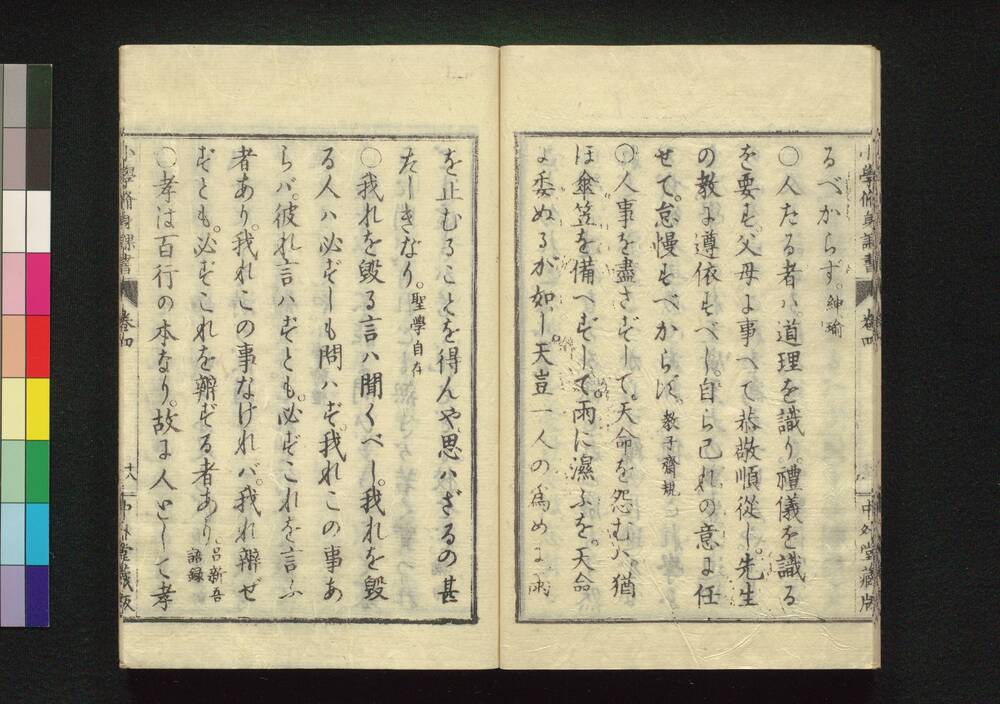 るべからず。紳瑜
〇人たる者ハ、道理を識り、禮儀を識る
を要す、父母に事へて恭敬順從し、先生
の教に遵依すべし、自ら己れの意に任
せて、怠慢すべからず、教子齋規
〇人事を盡さずして、天命を怨むハ、猶
ほ傘笠を備へずして、雨に濕ふを、天命
に委ぬるが如し、天豈一人の爲めに雨
を止むることを得んや、思ハざるの甚
だしきなり。聖學自在
〇我れを毀る言ハ聞くべし、我れを毀
る人ハ必ずしも問ハず、我れこの事あ
らバ、彼れ言ハずとも、必ずこれを言ふ
者あり、我れこの事なけれバ、我れ辯ぜ
ずとも、必ずこれを辯ずる者あり。呂新吾語録
〇孝は百行の本なり、故に人として孝
小學脩身課書 卷四 十八 中外堂藏版